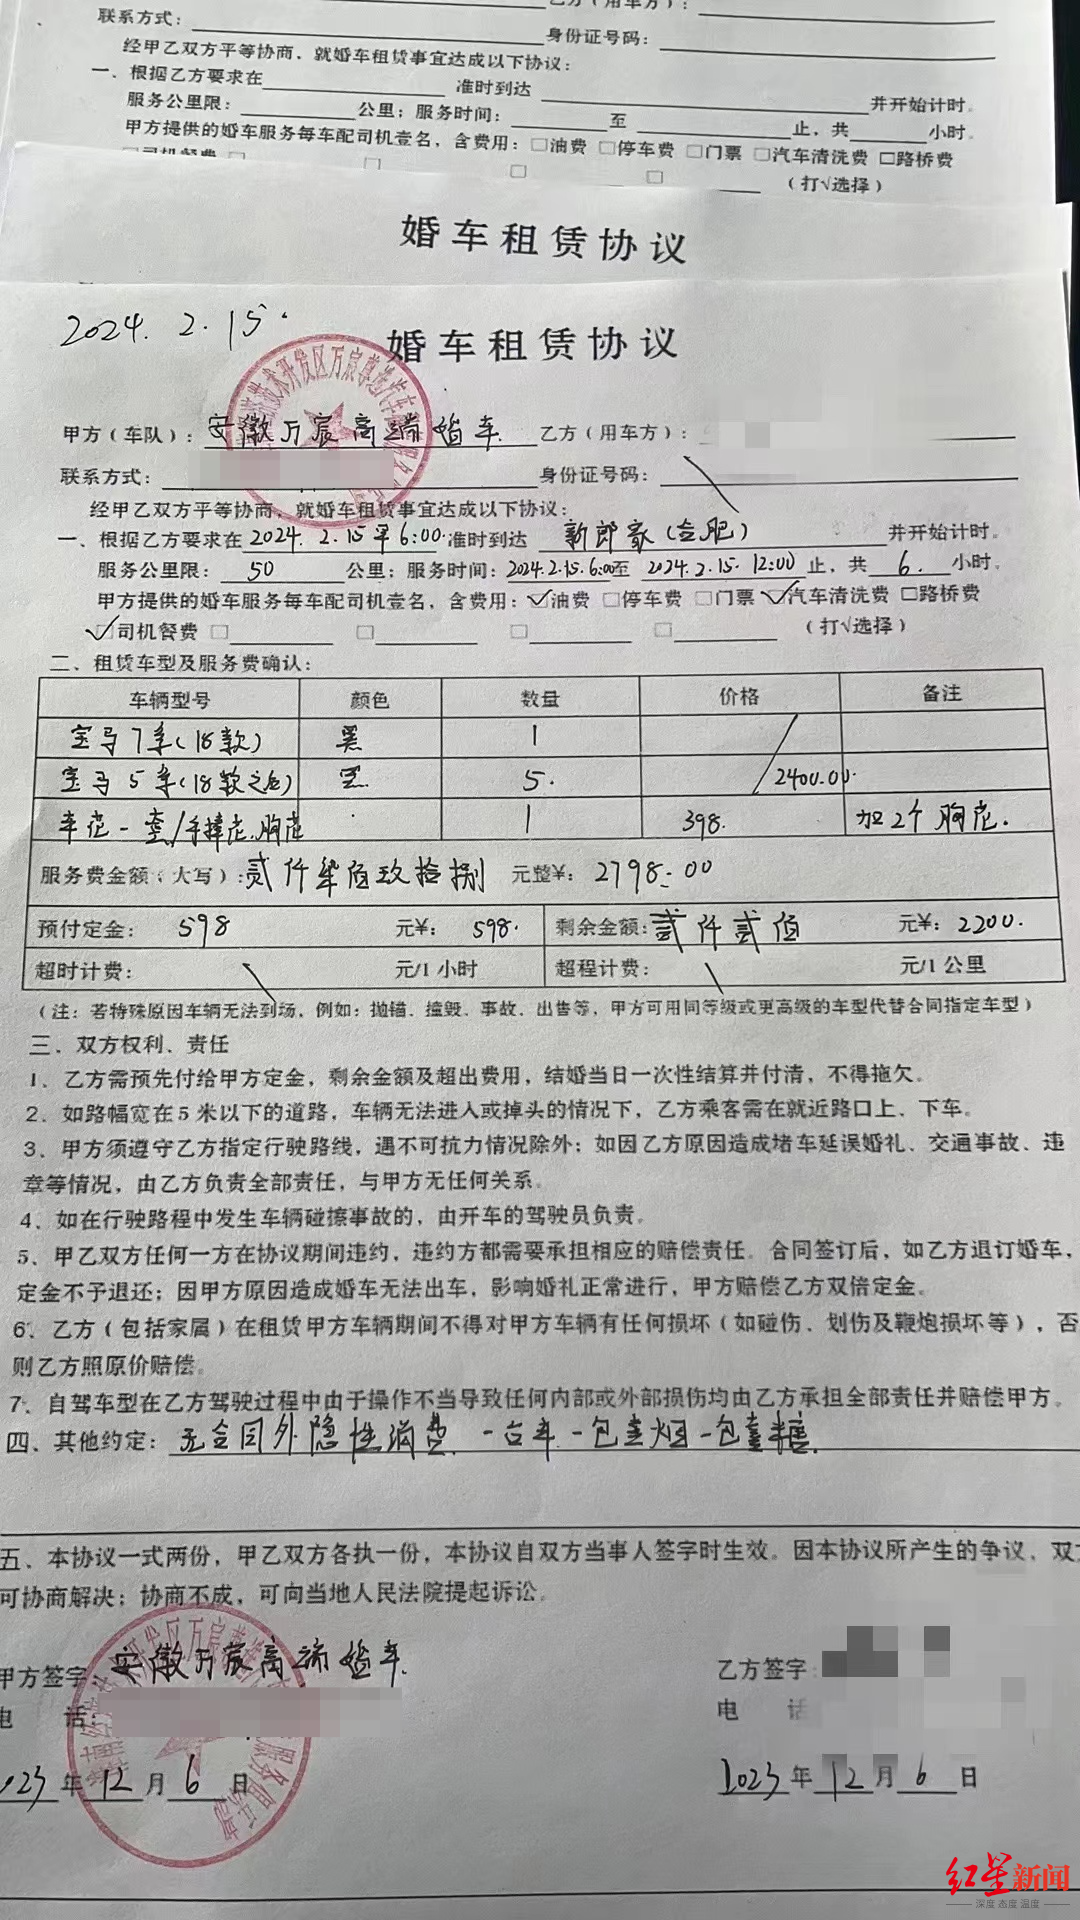 乙方(用车方):
联系方式:
身份证号码:
经甲乙双方平等协商,就婚车租赁事宜达成以下协议:
一、根据乙方要求在 准时到达 并开始计时。
服务公里限: 公里;服务时间: 至 止,共 小时。
甲方提供的婚车服务每车配司机壹名,含费用:□油费 □停车费 □门票 □汽车清洗费 □路桥费
□司机餐费 □ □ □ □ (打√选择)
婚车租赁协议
2024.2.15.
婚车租赁协议
甲方(车队):安徽万宸高端婚车 乙方(用车方):
联系方式: 身份证号码:
经甲乙双方平等协商,就婚车租赁事宜达成以下协议:
一、根据乙方要求在2024.2.15早6:00.准时到达 新郎家(合肥) 并开始计时。
服务公里限: 50 公里;服务时间:2024.2.15.6:00至 2024.2.15.12:00止,共 6. 小时。
甲方提供的婚车服务每车配司机壹名,含费用:☑油费 □停车费 □门票 ☑汽车清洗费 □路桥费
☑司机餐费 □ □ □ □ (打√选择)
二、租赁车型及服务费确认:
车辆型号 颜色 数量 价格 备注
宝马7系(18款) 黑 1
宝马5系(18款之后) 黑. 5. 2400.00.
车花一套/手捧花.胸花 1 398. 加2个胸花.
服务费金额(大写):贰仟柒佰玖拾捌 元整¥: 2798.00
预付定金: 598 元¥: 598. 剩余金额:贰仟贰佰 元¥: 2200.
超时计费: 元/1小时 超程计费: 元/1公里
(注:若特殊原因车辆无法到场,例如:抛锚、撞毁、事故、出售等,甲方可用同等级或更高级的车型代替合同指定车型)
三、双方权利、责任
1、乙方需预先付给甲方定金,剩余金额及超出费用,结婚当日一次性结算并付清,不得拖欠。
2、如路幅宽在5米以下的道路,车辆无法进入或掉头的情况下,乙方乘客需在就近路口上、下车。
3、甲方须遵守乙方指定行驶路线,遇不可抗力情况除外;如因乙方原因造成堵车延误婚礼、交通事故、违
章等情况,由乙方负责全部责任,与甲方无任何关系。
4、如在行驶路程中发生车辆碰擦事故的,由开车的驾驶员负责。
5、甲乙双方任何一方在协议期间违约,违约方都需要承担相应的赔偿责任。合同签订后,如乙方退订婚车,
定金不予退还;因甲方原因造成婚车无法出车,影响婚礼正常进行,甲方赔偿乙方双倍定金。
6、乙方(包括家属)在租赁甲方车辆期间不得对甲方车辆有任何损坏(如碰伤、划伤及鞭炮损坏等),否
则乙方照原价赔偿。
7、自驾车型在乙方驾驶过程中由于操作不当导致任何内部或外部损伤均由乙方承担全部责任并赔偿甲方。
四、其他约定: 无合同外隐性消费.一台车一包喜烟一包喜糖.
五、本协议一式两份,甲乙双方各执一份,本协议自双方当事人签字时生效。因本协议所产生的争议,双方
可协商解决;协商不成,可向当地人民法院提起诉讼。
甲方签字:安徽万宸高端婚车. 乙方签字:
电 话: 电 话
2023年12月6日 2023年12月6日
红星新闻
深度 态度 温度